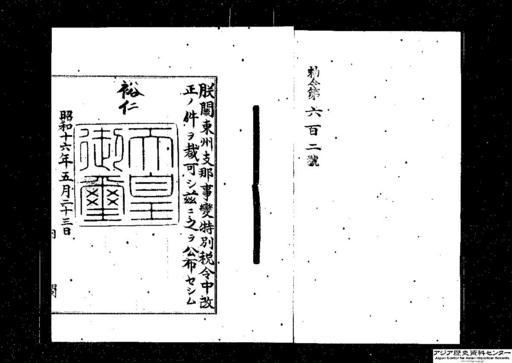 勅令第六百二號
朕關東州支那事變特別税令中改
正ノ件ヲ裁可シ茲ニ之ヲ公布セシム
裕仁
天皇
御璽
昭和十六年五月二十三日
内閣
アジア歴史資料センター
Japan Center for Asian Historical Records